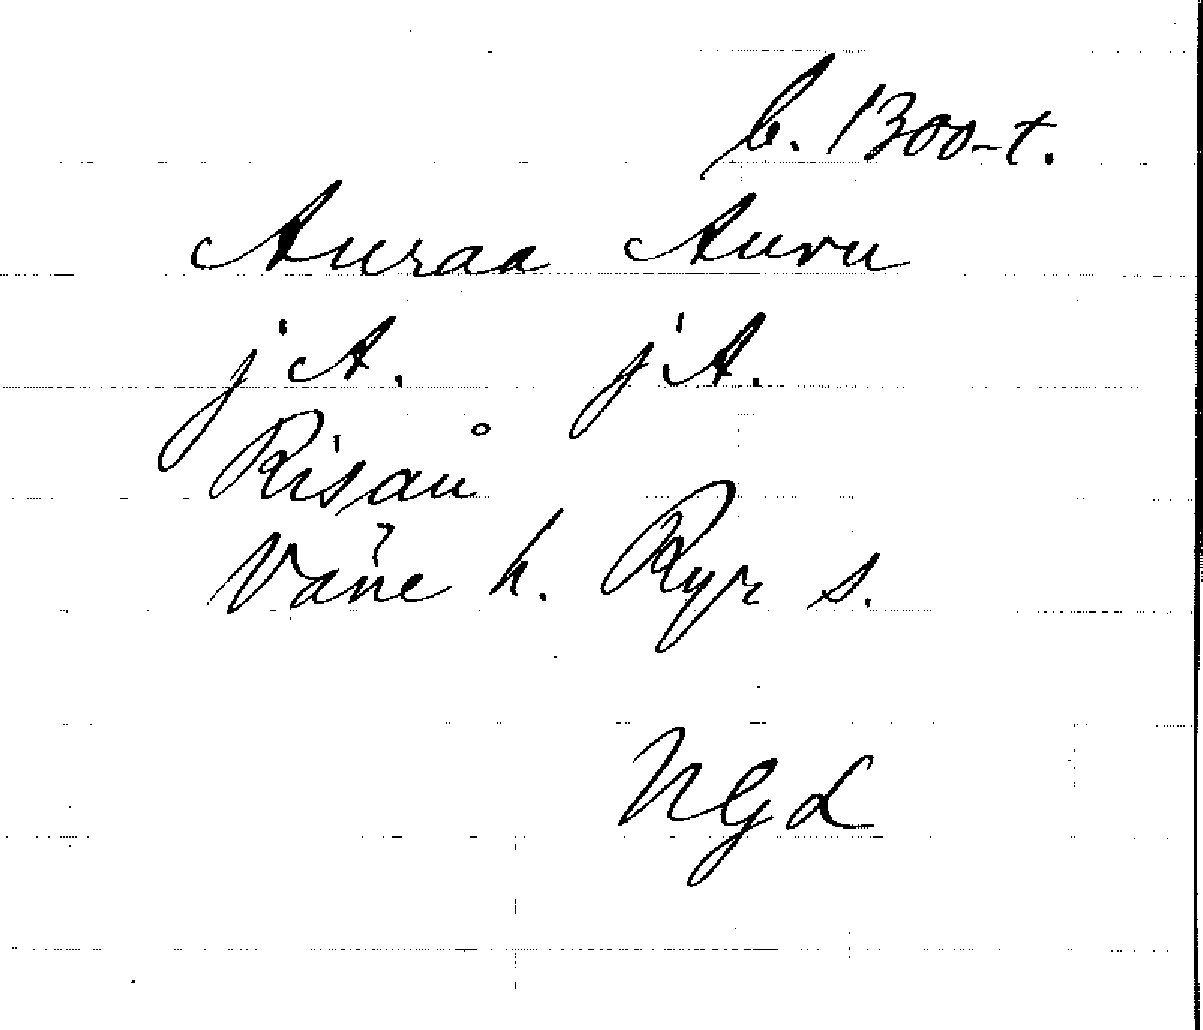 b. 1300-t.
Auraa Auru
j A. j A.
Risåu
Väne h. Ryr s.
NGL